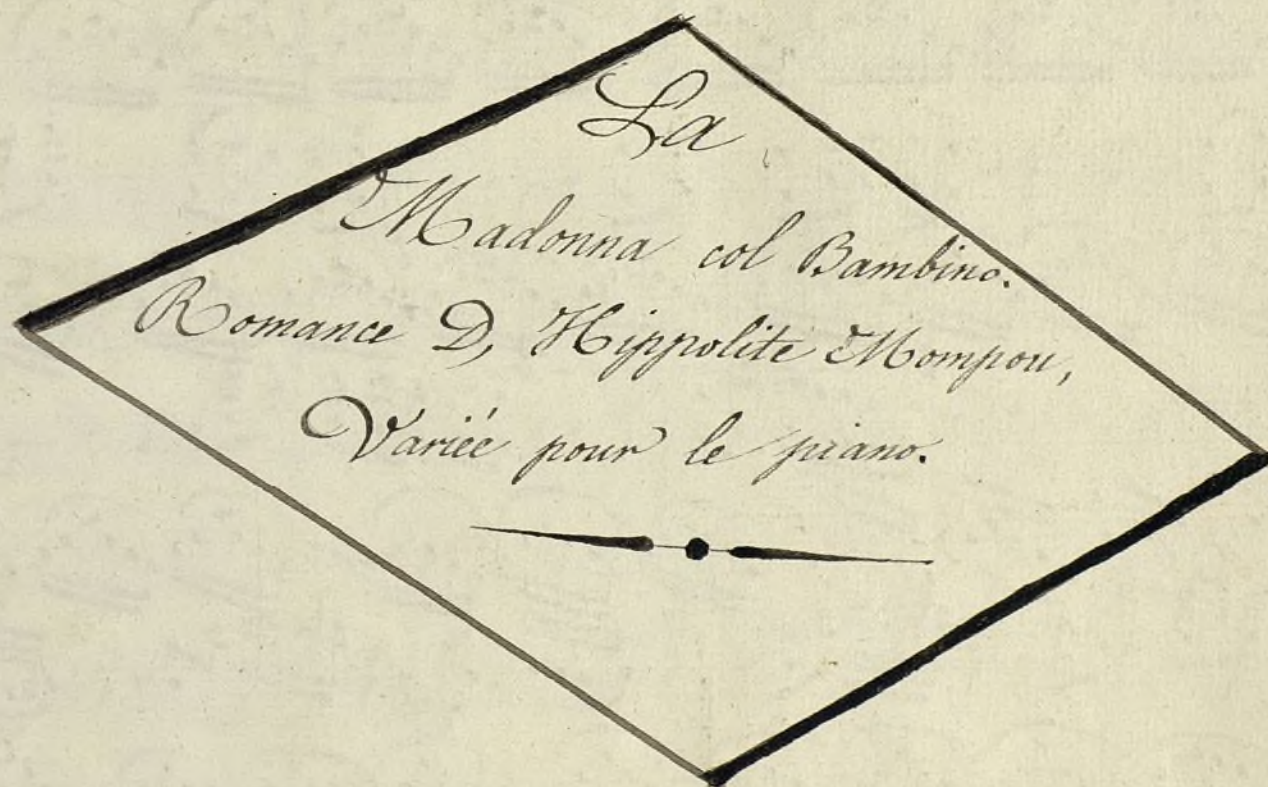 La
Madonna col Bambino.
Romance D, Hippolite Mompou,
Variée pour le piano.